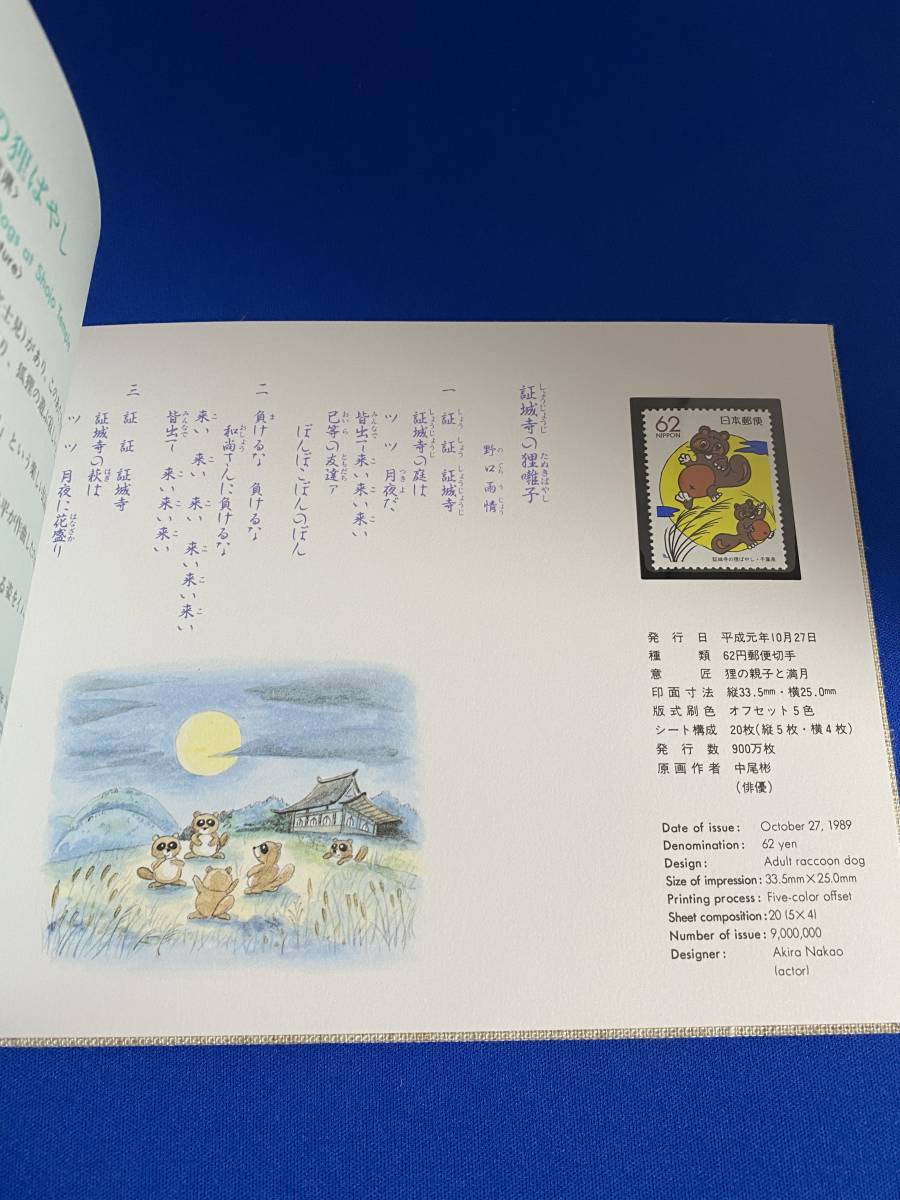 の狸ばやし
Dogs at Shojo Temple
証城寺の狸囃子
しょうじょうじ
たぬきばやし
野口雨情
の ぐち う じょう
一 証 証 証城寺
しょう しょう しょうじょうじ
証城寺の庭は
しょうじょうじ
ツ ツ 月夜だ
つきよ
皆出て来い来い来い
みんなで こ
己等の友達ァ
おいら ともだち
ぽんぽこぽんのぽん
二 負けるな 負けるな
ま
和尚さんに負けるな
おしょう
来い 来い 来い 来い来い来い
こ
皆出て 来い来い来い
みんなで
三 証 証 証城寺
証城寺の萩は
はぎ
ツ ツ 月夜に花盛り
はなざか
62
NIPPON
日本郵便
証城寺の狸ばやし・千葉県
発行日 平成元年10月27日
種類 62円郵便切手
意匠 狸の親子と満月
印面寸法 縦33.5mm・横25.0mm
版式刷色 オフセット5色
シート構成 20枚(縦5枚・横4枚)
発行数 900万枚
原画作者 中尾彬
(俳優)
Date of issue: October 27, 1989
Denomination: 62 yen
Design: Adult raccoon dog
Size of impression: 33.5mm×25.0mm
Printing process: Five-color offset
Sheet composition: 20 (5×4)
Number of issue: 9,000,000
Designer: Akira Nakao
(actor)